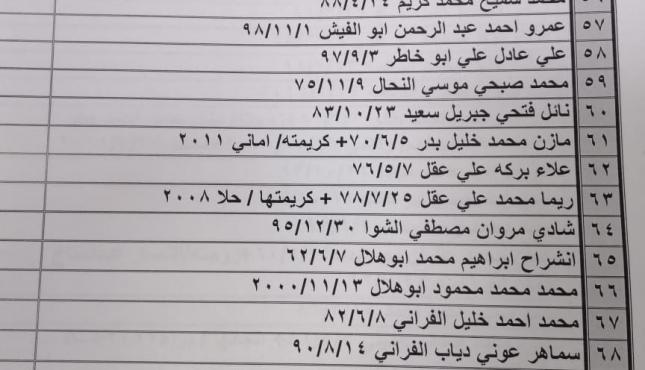 محمد سميح محمد كريم ٨٨/٤/١٤
٥٧ عمرو احمد عبد الرحمن ابو الفيش ٩٨/١١/١
٥٨ علي عادل علي ابو خاطر ٩٧/٩/٣
٥٩ محمد صبحي موسي النحال ٧٥/١١/٩
٦٠ نائل فتحي جبريل سعيد ٨٣/١٠/٢٣
٦١ مازن محمد خليل بدر ٧٠/٦/٥+ كريمته/ اماني ٢٠١١
٦٢ علاء بركه علي عقل ٧٦/٥/٧
٦٣ ريما محمد علي عقل ٧٨/٧/٢٥ + كريمتها / حلا ٢٠٠٨
٦٤ شادي مروان مصطفي الشوا ٩٥/١٢/٣٠
٦٥ انشراح ابراهيم محمد ابوهلال ٦٢/٦/٧
٦٦ محمد محمد محمود ابوهلال ٢٠٠٠/١١/١٣
٦٧ محمد احمد خليل الفراني ٨٢/٦/٨
٦٨ سماهر عوني دياب الفراني ٩٠/٨/١٤